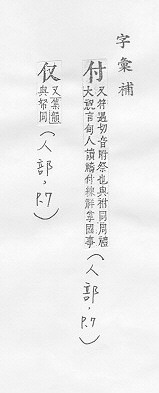 字彙補
付
又符遇切音附祭也與祔同周禮
大祝言甸人讀禱付練祥掌國事
(人部,P.7)
仅
又集韻
與帑同
(人部,P.7)